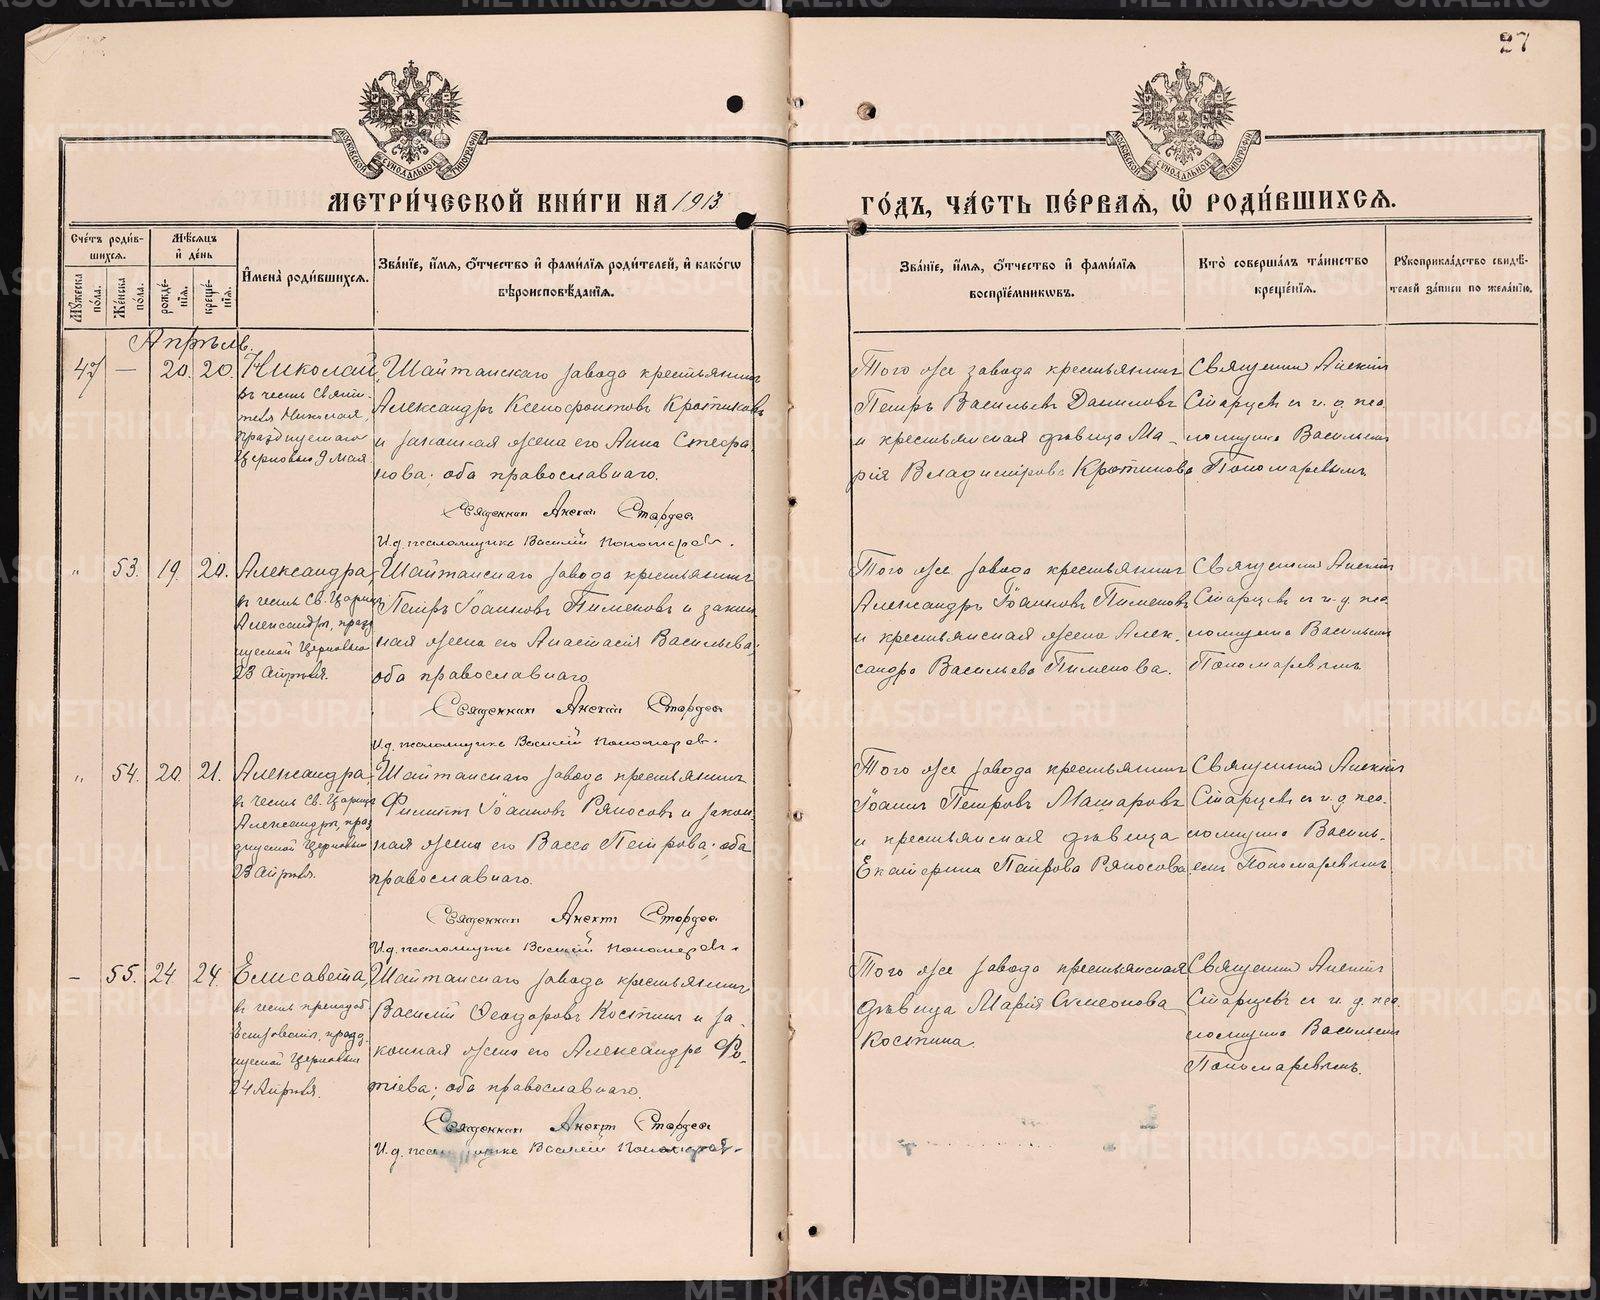 27
МОСКОВСКОЙ СѴНОДАЛЬНОЙ ТИПОГРАФІИ
МОСКОВСКОЙ СѴНОДАЛЬНОЙ ТИПОГРАФІИ
МЕТРИ́ЧЕСКОЙ КНИ́ГИ НА 1913
ГО́ДЪ, ЧА́СТЬ ПЕ́РВАЯ, Ѡ РОДИ́ВШИХСЯ.
Сче́тъ роди́в-
шихся.
Мѣ́сяцъ
и де́нь
Му́жеска
по́ла.
Же́нска
по́ла.
рожде́-
нїя.
креще́-
нїя.
Имена̀ роди́вшихся.
Зва́нїе, и́мя, о́тчество и фами́лїя роди́телей, и како́гѡ
вѣроисповѣ́данїя.
Зва́нїе, и́мя, о́тчество и фами́лїя
воспрїе́мникѡвъ.
Кто̀ соверша́лъ та́инство
креще́нїя.
Рукоприкла́дство свидѣ́-
телей за́писи по жела́нїю.
Апрѣль.
47 — 20. 20. Николай,
въ честь Святи-
теля Николая,
празднуемаго
Церковью 9 мая.
Шайтанскаго завода крестьянинъ
Александръ Ксенофонтовъ Кротиковъ
и законная жена его Анна Стефа-
нова; оба православнаго.
Священникъ Анектъ Старцевъ
И.д. псаломщика Василій Пономаревъ.
Того же завода крестьянинъ
Петръ Васильевъ Даниловъ
и крестьянская дѣвица Ма-
рія Владимірова Кротикова.
Священникъ
Старцевъ съ и. д. пса-
ломщика Василіемъ
Пономаревымъ.
" 53. 19. 20. Александра,
въ честь Св. Царицы
Александры, празд-
нуемой Церковью
23 Апрѣля.
Шайтанскаго завода крестьянинъ
Петръ Іоанновъ Пименовъ и закон-
ная жена его Анастасія Васильева;
оба православнаго.
Священникъ Старцевъ
И.д. псаломщика Василій Пономаревъ.
Того же завода крестьянинъ
Александръ Іоанновъ Пименовъ
и крестьянская жена Алек-
сандра Васильева Пименова.
Священникъ
Старцевъ съ и. д. пса-
ломщика Василіемъ
Пономаревымъ
" 54. 20. 21. Александра,
въ честь Св. Царицы
Александры, праз-
днуемой Церковью
23 Апрѣля.
Шайтанскаго завода крестьянинъ
Филиппъ Іоанновъ Ряпосовъ и закон-
ная жена его Васса Петрова; оба
православнаго.
Священникъ Старцевъ
И.д. псаломщика Василій Пономаревъ.
Того же завода крестьянинъ
Іоаннъ Петровъ
и крестьянская дѣвица
Екатерина Петрова Ряпосова.
Священникъ
Старцевъ съ и. д. пса-
ломщика Василі-
емъ Пономаревымъ
— 55. 24 24. Елисавета,
въ честь преподоб.
Елисаветы, празд-
нуемой Церковью
24 Апрѣля.
Шайтанскаго завода крестьянинъ
Василій Ѳеодоровъ Костинъ и за-
конная жена его Александра Фо-
тіева; оба православнаго.
Священникъ Старцевъ
И.д. псаломщика Василій Пономаревъ.
Того же завода крестьянская
дѣвица Марія Симеонова
Костина.
Священникъ
Старцевъ съ и. д. пса-
ломщика Василіемъ
Пономаревымъ.
METRIKI.GASO-URAL.RU